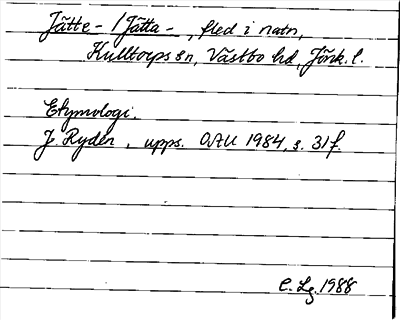 Jätte- / Jätta-, fled i natn,
Kulltorps sn, Västbo hd, Jönk. l.
Etymologi.
J. Rydén, upps. OAU 1984, s. 31 f.
C. Lg. 1988